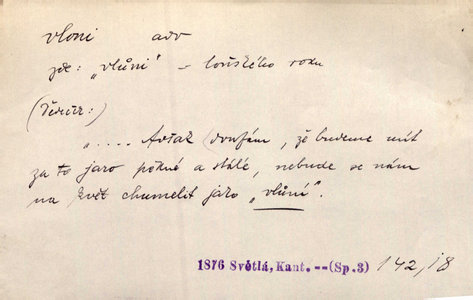 vloni adv
zde: „vlůni" – loňského roku
(Dědic:)
„.... Avšak doufám, že budeme mít
za to jaro pěkné a stálé, nebude se nám
na květ chumelit jako „vlůni".
1876 Světlá, Kant. -- (Sp.3) 142,18